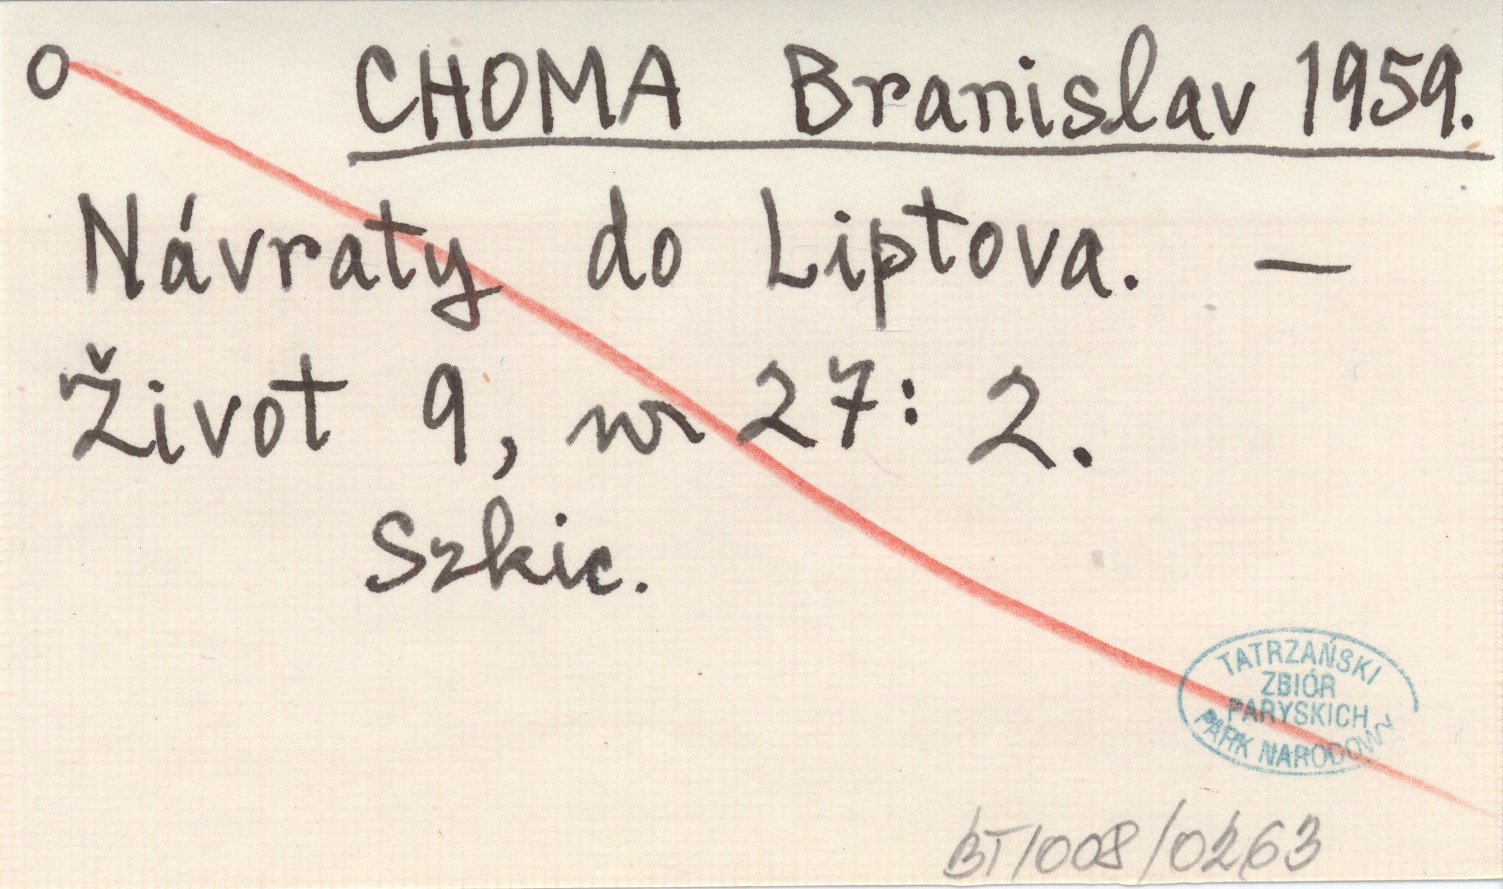 O CHOMA Branislav 1959.
Návraty do Liptova. —
Život 9, nr 27: 2.
Szkic.
TATRZAŃSKI
ZBIÓR
PARYSKICH
PARK NARODOWY
BT/008/0263